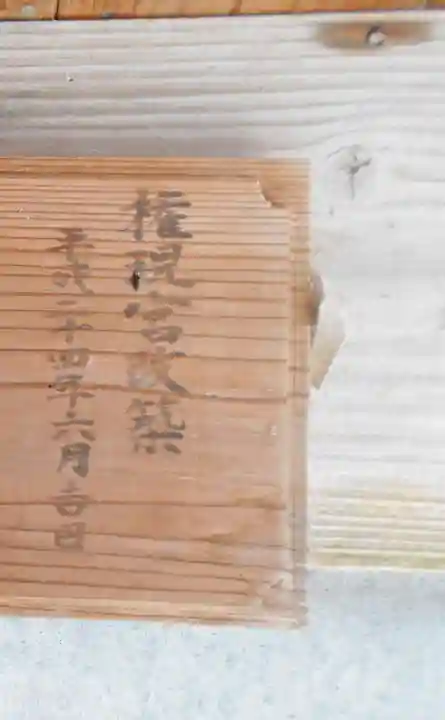 権現宮改築
平成二十四年六月吉日